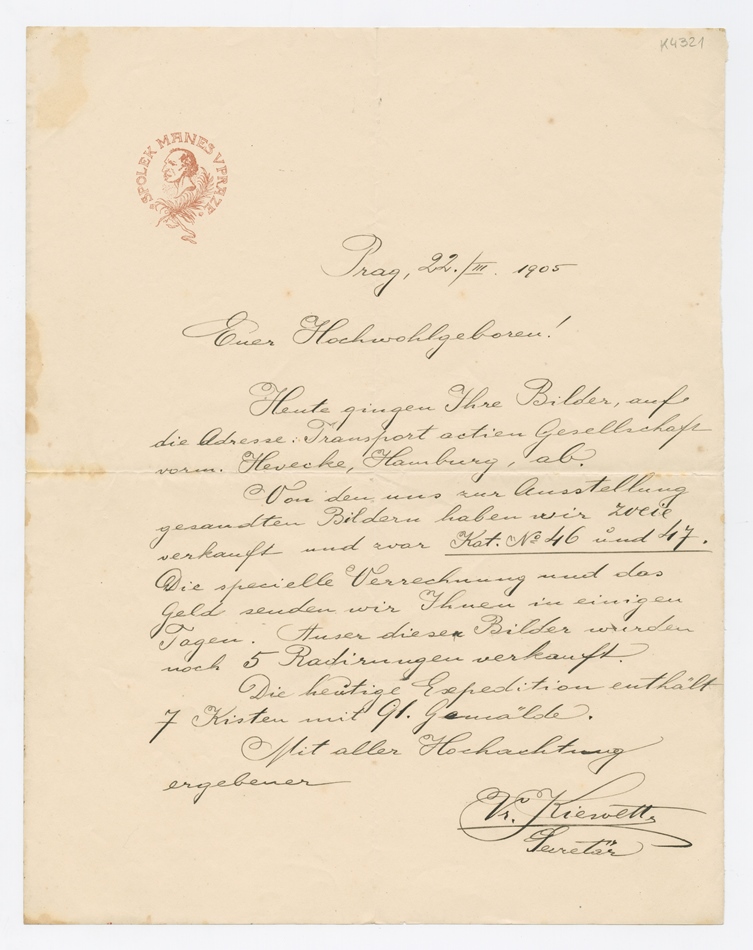 K4321
"SPOLEK MANES V PRAZE"
Prag, 22./III. 1905
Euer Hochwohlgeboren!
Heute gingen Ihre Bilder, auf
die Adresse: Transport actien Gesellschaft
vorm. Hevecke, Hamburg, ab.
Von den uns zur Ausstellung
gesandten Bildern haben wir zweie
verkauft und zwar Kat. No 46 und 47.
Die specielle Verrechnung und das
Geld senden wir Ihnen in einigen
Tagen. Auser diesen Bilder wurden
noch 5 Radirungen verkauft.
Die heutige Expedition enthält
7 Kisten mit 91. Gemälde.
Mit aller Hochachtung
ergebener
Secretär